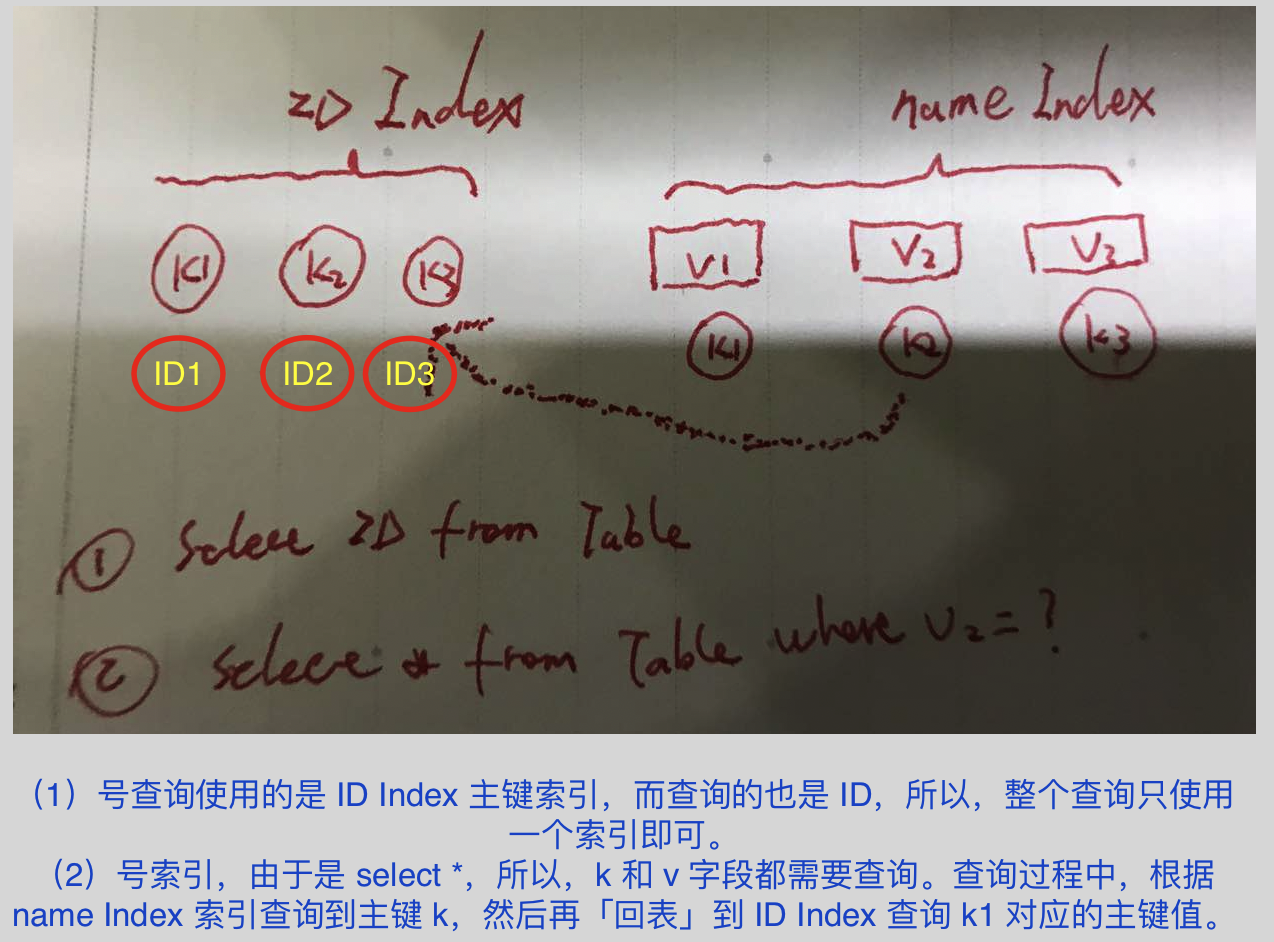 ID Index
name Index
K1 K2 K3
V1 V2 V3
K1 K2 K3
ID1 ID2 ID3
① Select ID from Table
② Select * from Table where V2=?
（1）号查询使用的是 ID Index 主键索引，而查询的也是 ID，所以，整个查询只使用
一个索引即可。
（2）号索引，由于是 select *，所以，k 和 v 字段都需要查询。查询过程中，根据
name Index 索引查询到主键 k，然后再「回表」到 ID Index 查询 k1 对应的主键值。